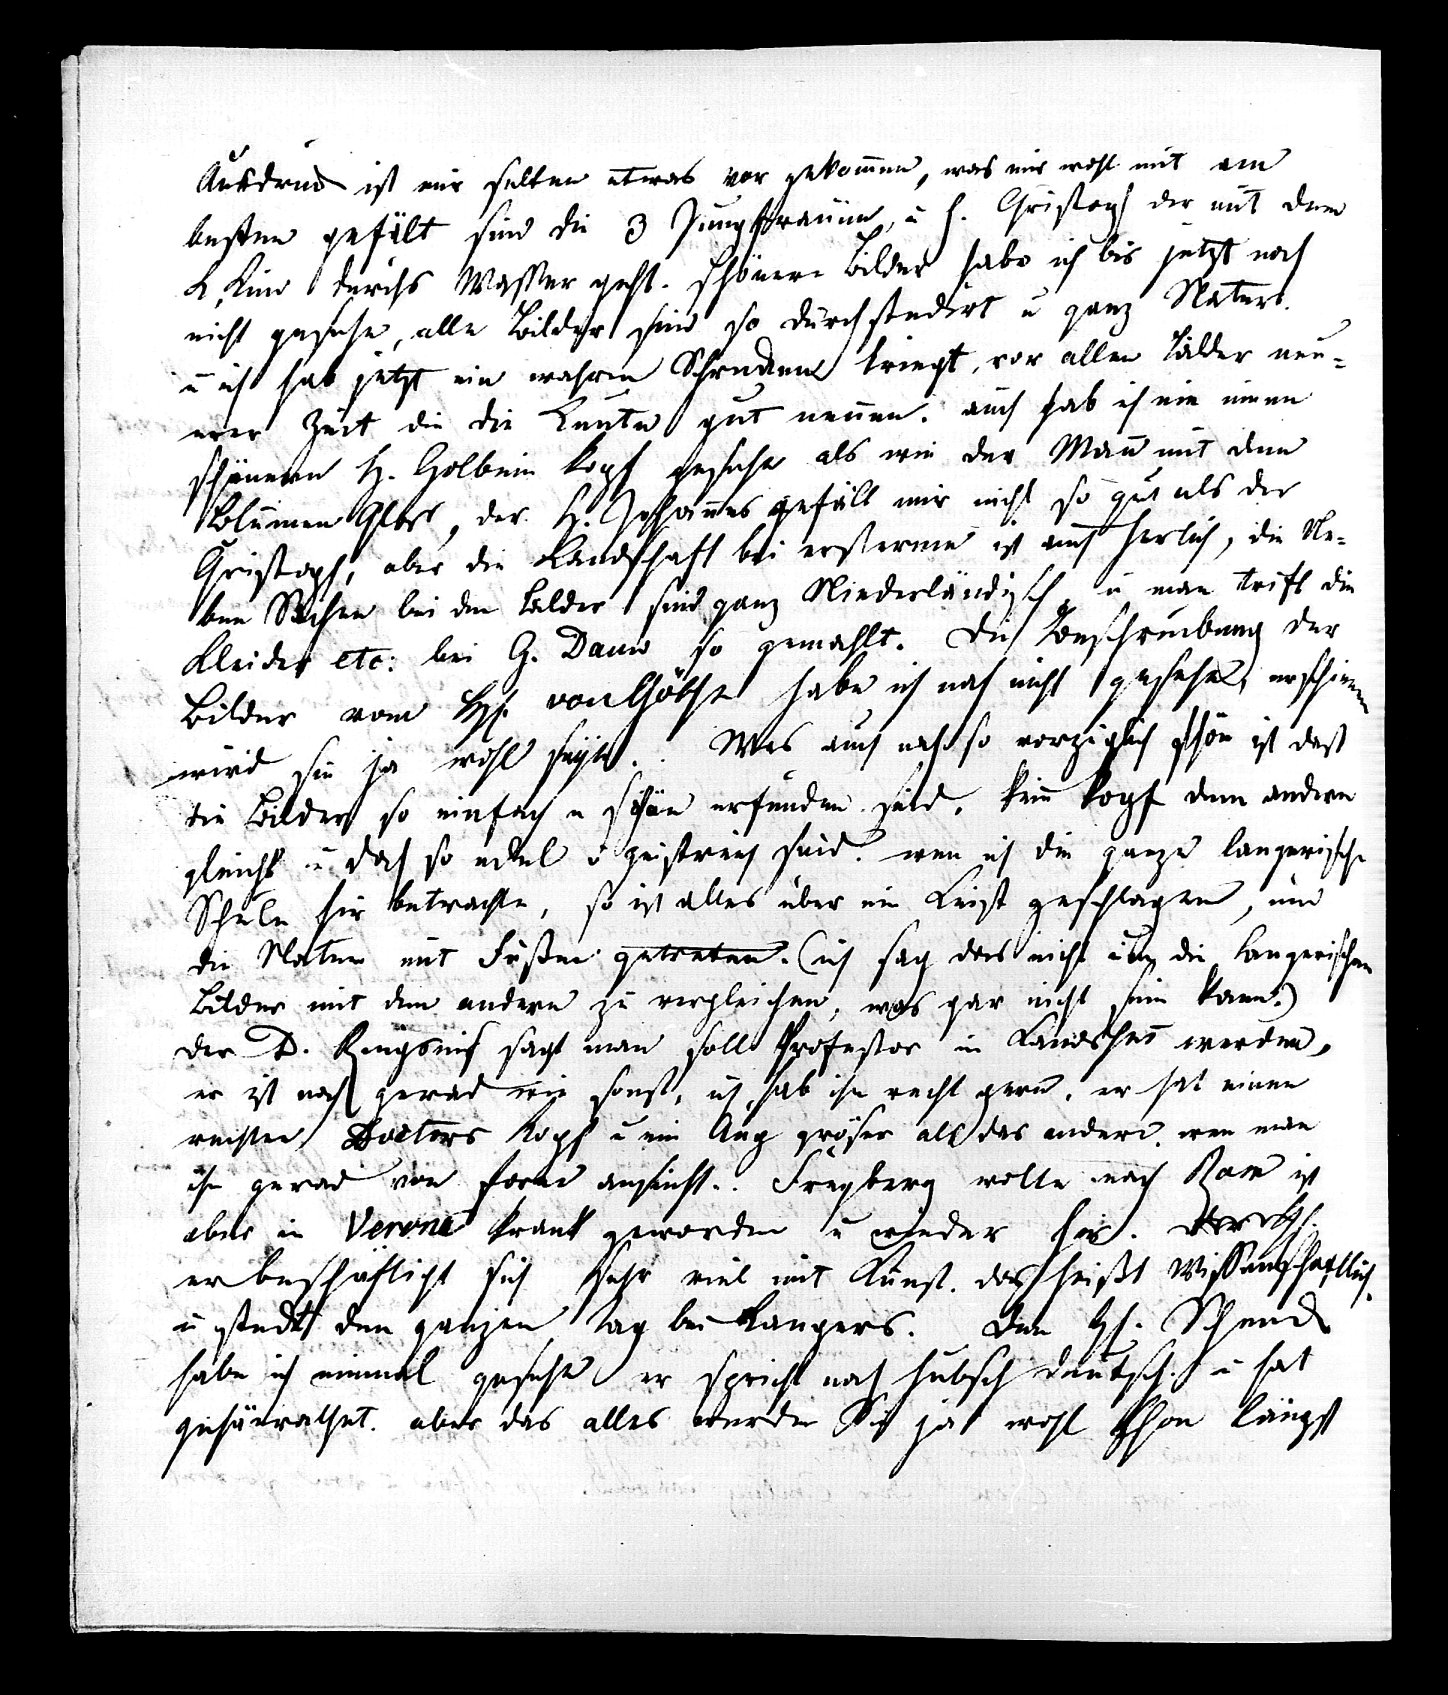 Ausdruck ist mir selten etwas vor gekom̅en, was mir wohl mit am
besten gefält sind die 3 Jungfrauen, u h. Christoph der mit dem
L. Kind durchs Wasser geht. schönere Bilder habe ich bis jetzt noch
nicht gesehe, alle Bilder sind so durchstudirt u ganz Natur.
u ich hab jetzt ein wahren Schrecken kriegt, vor allen Bilder neu=
erer Zeit die die Leute gut nennen. auch hab ich nie einen
schönern H. Holbein kopf gesehe als wie der Man̅ mit dem
Blumen Glas, der H. Johan̅es gefält mir nicht so gut als der
Christoph, aber die Landschaft bei ersterem ist auch herlich, die Ne=
ben Sachen bei den Bilder sind ganz Niederländisch, u man trift die
Kleider etc: bei G. Dauw so gemahlt. Die Beschreibung der
Bilder vom H. von Göthe habe ich noch nicht gesehe, erschienen
wird sie ja wohl seyn. Was auch noch so vorziglich schön ist daß
die Bilder so einfach u schön erfunden sind, kein kopf dem andern
gleicht u doch so edel u geistreich sind. wen ich die ganze langerische
Schule hir betrachte, so ist alles über ein Leist geschlagen, und
die Natur mit Füßen getreten. (ich sag das nicht um die langerischen
Bilder mit dem andern zu vergleichen, was gar nicht sein kann.)
der D. Ringseis sagt man soll Professor in Landshut werden,
er ist noch gerad wie sonst, ich hab ihn recht gern. er hat einen
rechten Doctors Kopf u ein Aug gröser als das andere. wen man
ihn gerad von forne ansieht. Freyberg wolte nach Rom ist
aber in Verona krank geworden u wieder hir.
er beschäftigt sich sehr viel mit Kunst. das heißt Wissenschaftlich,
u steckt den ganzen tag bei Langers. Den H. Schenck
habe ich einmal gesehe er spricht noch hübsch deutsch. u hat
geheurathet. aber das alles werden Sie ja wohl schon längst